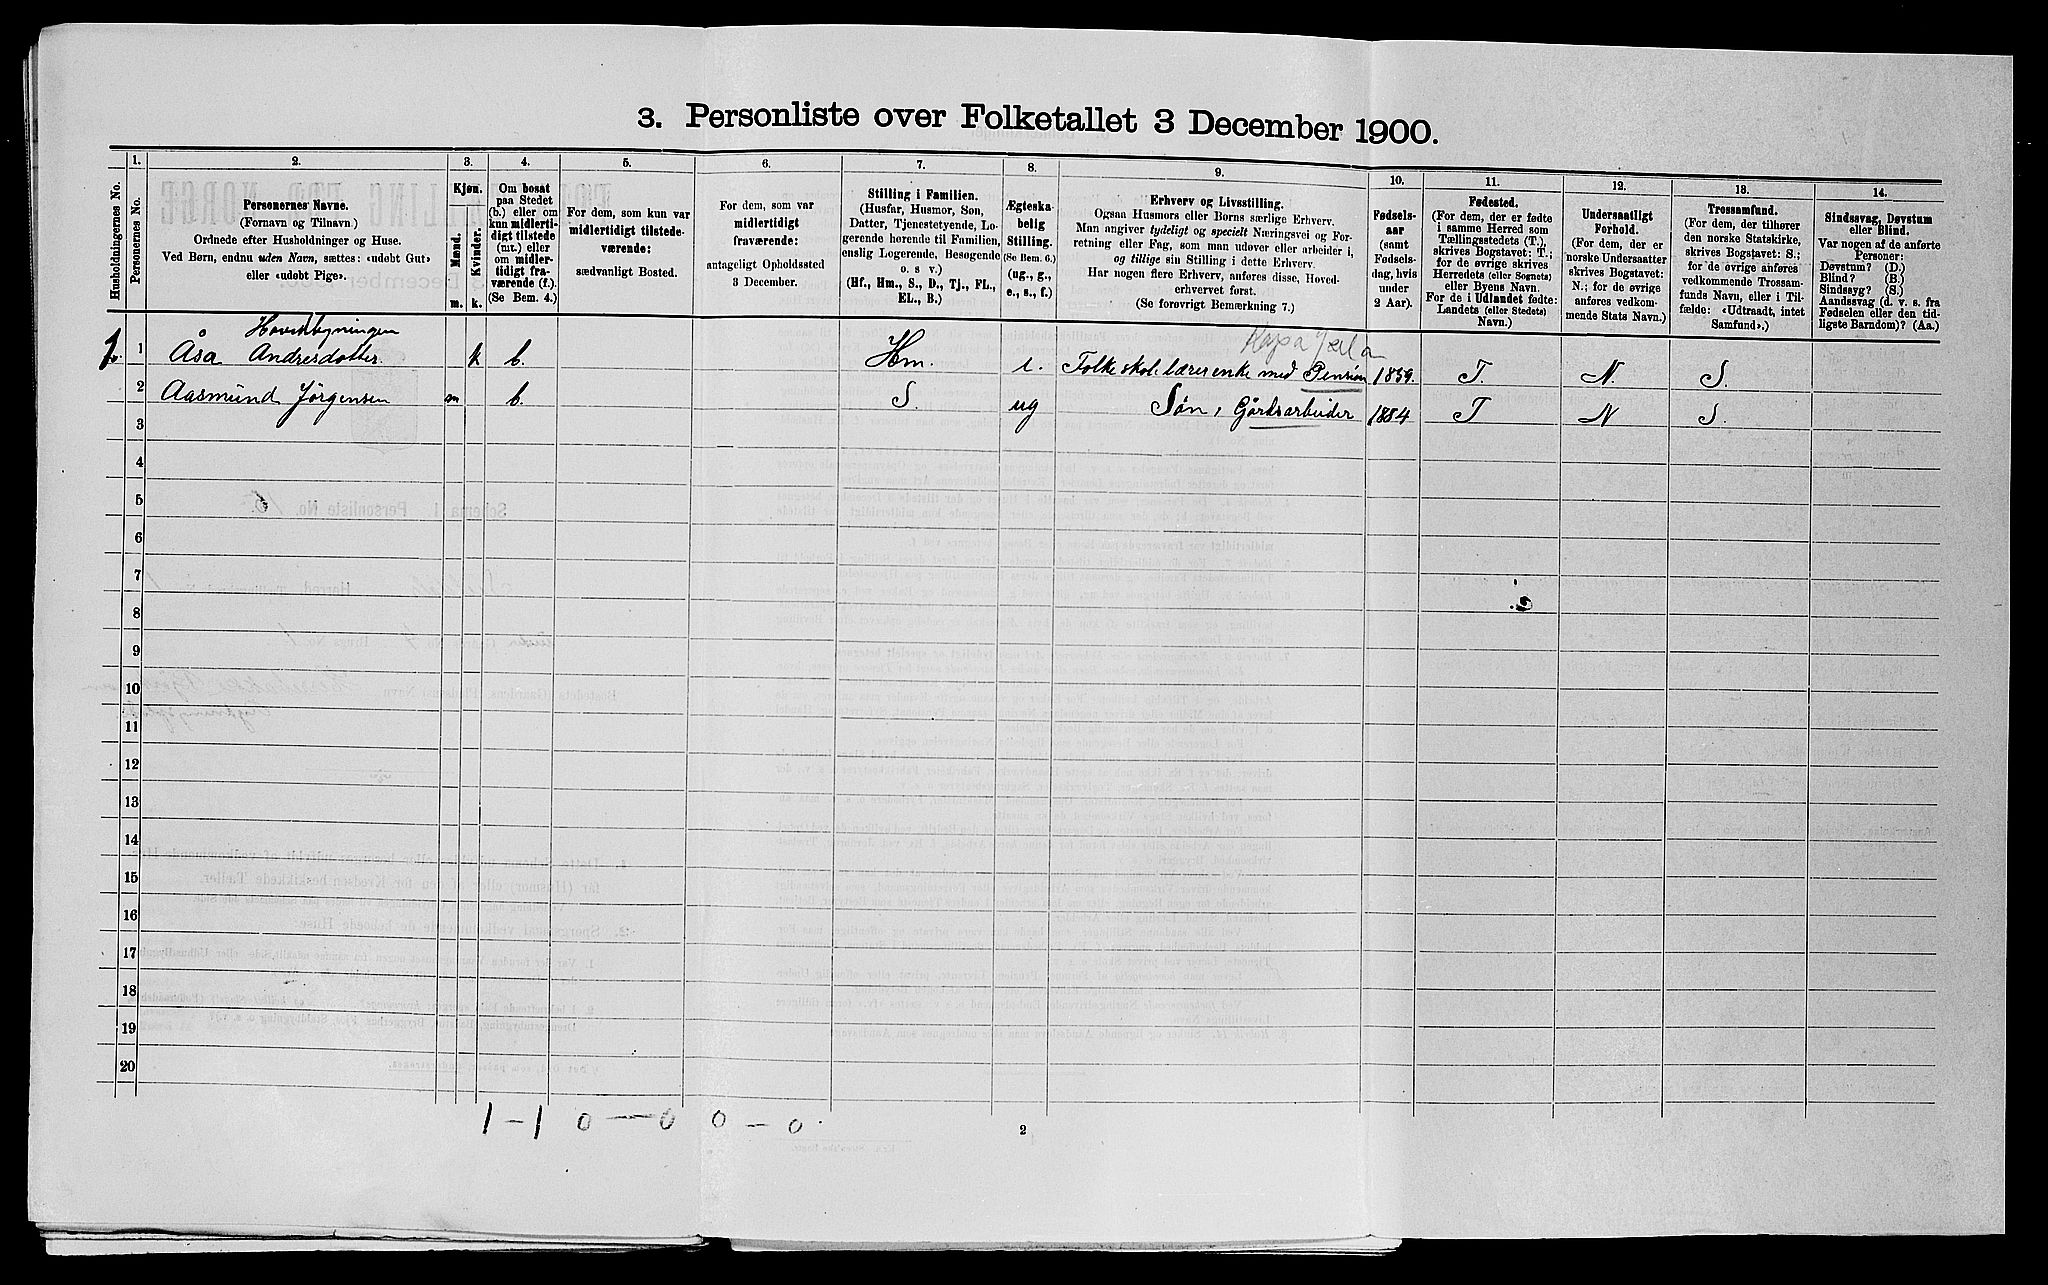 3. Personliste over Folketallet 3 December 1900.
Husholdningernes No.
1.
Personernes No.
2.
Personernes Navne.
(Fornavn og Tilnavn.)
Ordnede efter Husholdninger og Huse.
Ved Børn, endnu uden Navn, sættes: «udøbt Gut»
eller «udøbt Pige».
3.
Kjøn.
Mænd.
Kvinder.
m.
k.
4.
Om bosat
paa Stedet
(b.) eller om
kun midlerti-
digt tilstede
(mt.) eller
om midler-
tidigt fra-
værende (f.).
(Se Bem. 4.)
5.
For dem, som kun var
midlertidigt tilstede-
værende:
sædvanligt Bosted.
6.
For dem, som var
midlertidigt
fraværende:
antageligt Opholdssted
3 December.
7.
Stilling i Familien.
(Husfar, Husmor, Søn,
Datter, Tjenestetyende, Lo-
gerende hørende til Familien,
enslig Logerende, Besøgende
o. s. v.)
(Hf., Hm., S., D., Tj., FL.,
EL., B.)
8.
Ægteska-
belig
Stilling.
(Se Bem. 6.)
(ug., g.,
e., s., f.)
9.
Erhverv og Livsstilling.
Ogsaa Husmors eller Børns særlige Erhverv.
Man angiver tydeligt og specielt Næringsvei og For-
retning eller Fag, som man udøver eller arbeider i,
og tillige sin Stilling i dette Erhverv.
Har nogen flere Erhverv, anføres disse, Hoved-
erhvervet først.
(Se forøvrigt Bemærkning 7.)
10.
Fødsels-
aar
(samt
Fødsels-
dag, hvis
under
2 Aar).
11.
Fødested.
(For dem, der er fødte
i samme Herred som
Tællingsstedets (T.),
skrives Bogstavet: T.;
for de øvrige skrives
Herredets (eller Sognets)
eller Byens Navn.
For de i Udlandet fødte:
Landets (eller Stedets)
Navn.)
12.
Undersaatligt
Forhold.
(For dem, der er
norske Undersaatter
skrives Bogstavet:
N.; for de øvrige
anføres vedkom-
mende Stats Navn.)
13.
Trossamfund.
(For dem, der tilhører
den norske Statskirke,
skrives Bogstavet: S.;
for de øvrige anføres
vedkommende Trossam-
funds Navn, eller i Til-
fælde: «Udtraadt, intet
Samfund».)
14.
Sindssvag, Døvstum
eller Blind.
Var nogen af de anførte
Personer:
Døvstum? (D.)
Blind? (B.)
Sindssyg? (S.)
Aandssvag (d. v. s. fra
Fødselen eller den tid-
ligste Barndom)? (Aa.)
Hovedbygningen
1. 1 Åsa Andresdotter. k b. Hm. e. Folkeskol.lærerenke med Pension 1839. T. N. S.
2 Aasmund Jörgensen m b. S. ug Søn, Gårdsarbeider 1884 T N S
3
4
5
6
7
8
9
10
11
12
13
14
15
16
17
18
19
20
1 – 1 0 — 0 0 – 0.
2